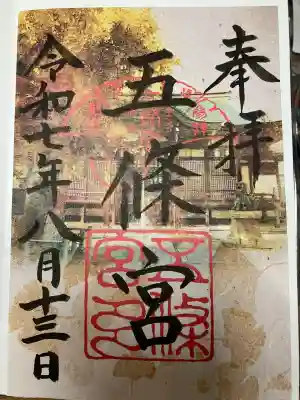 奉拝
五條宮
令和七年八月十三日
五條
宮印